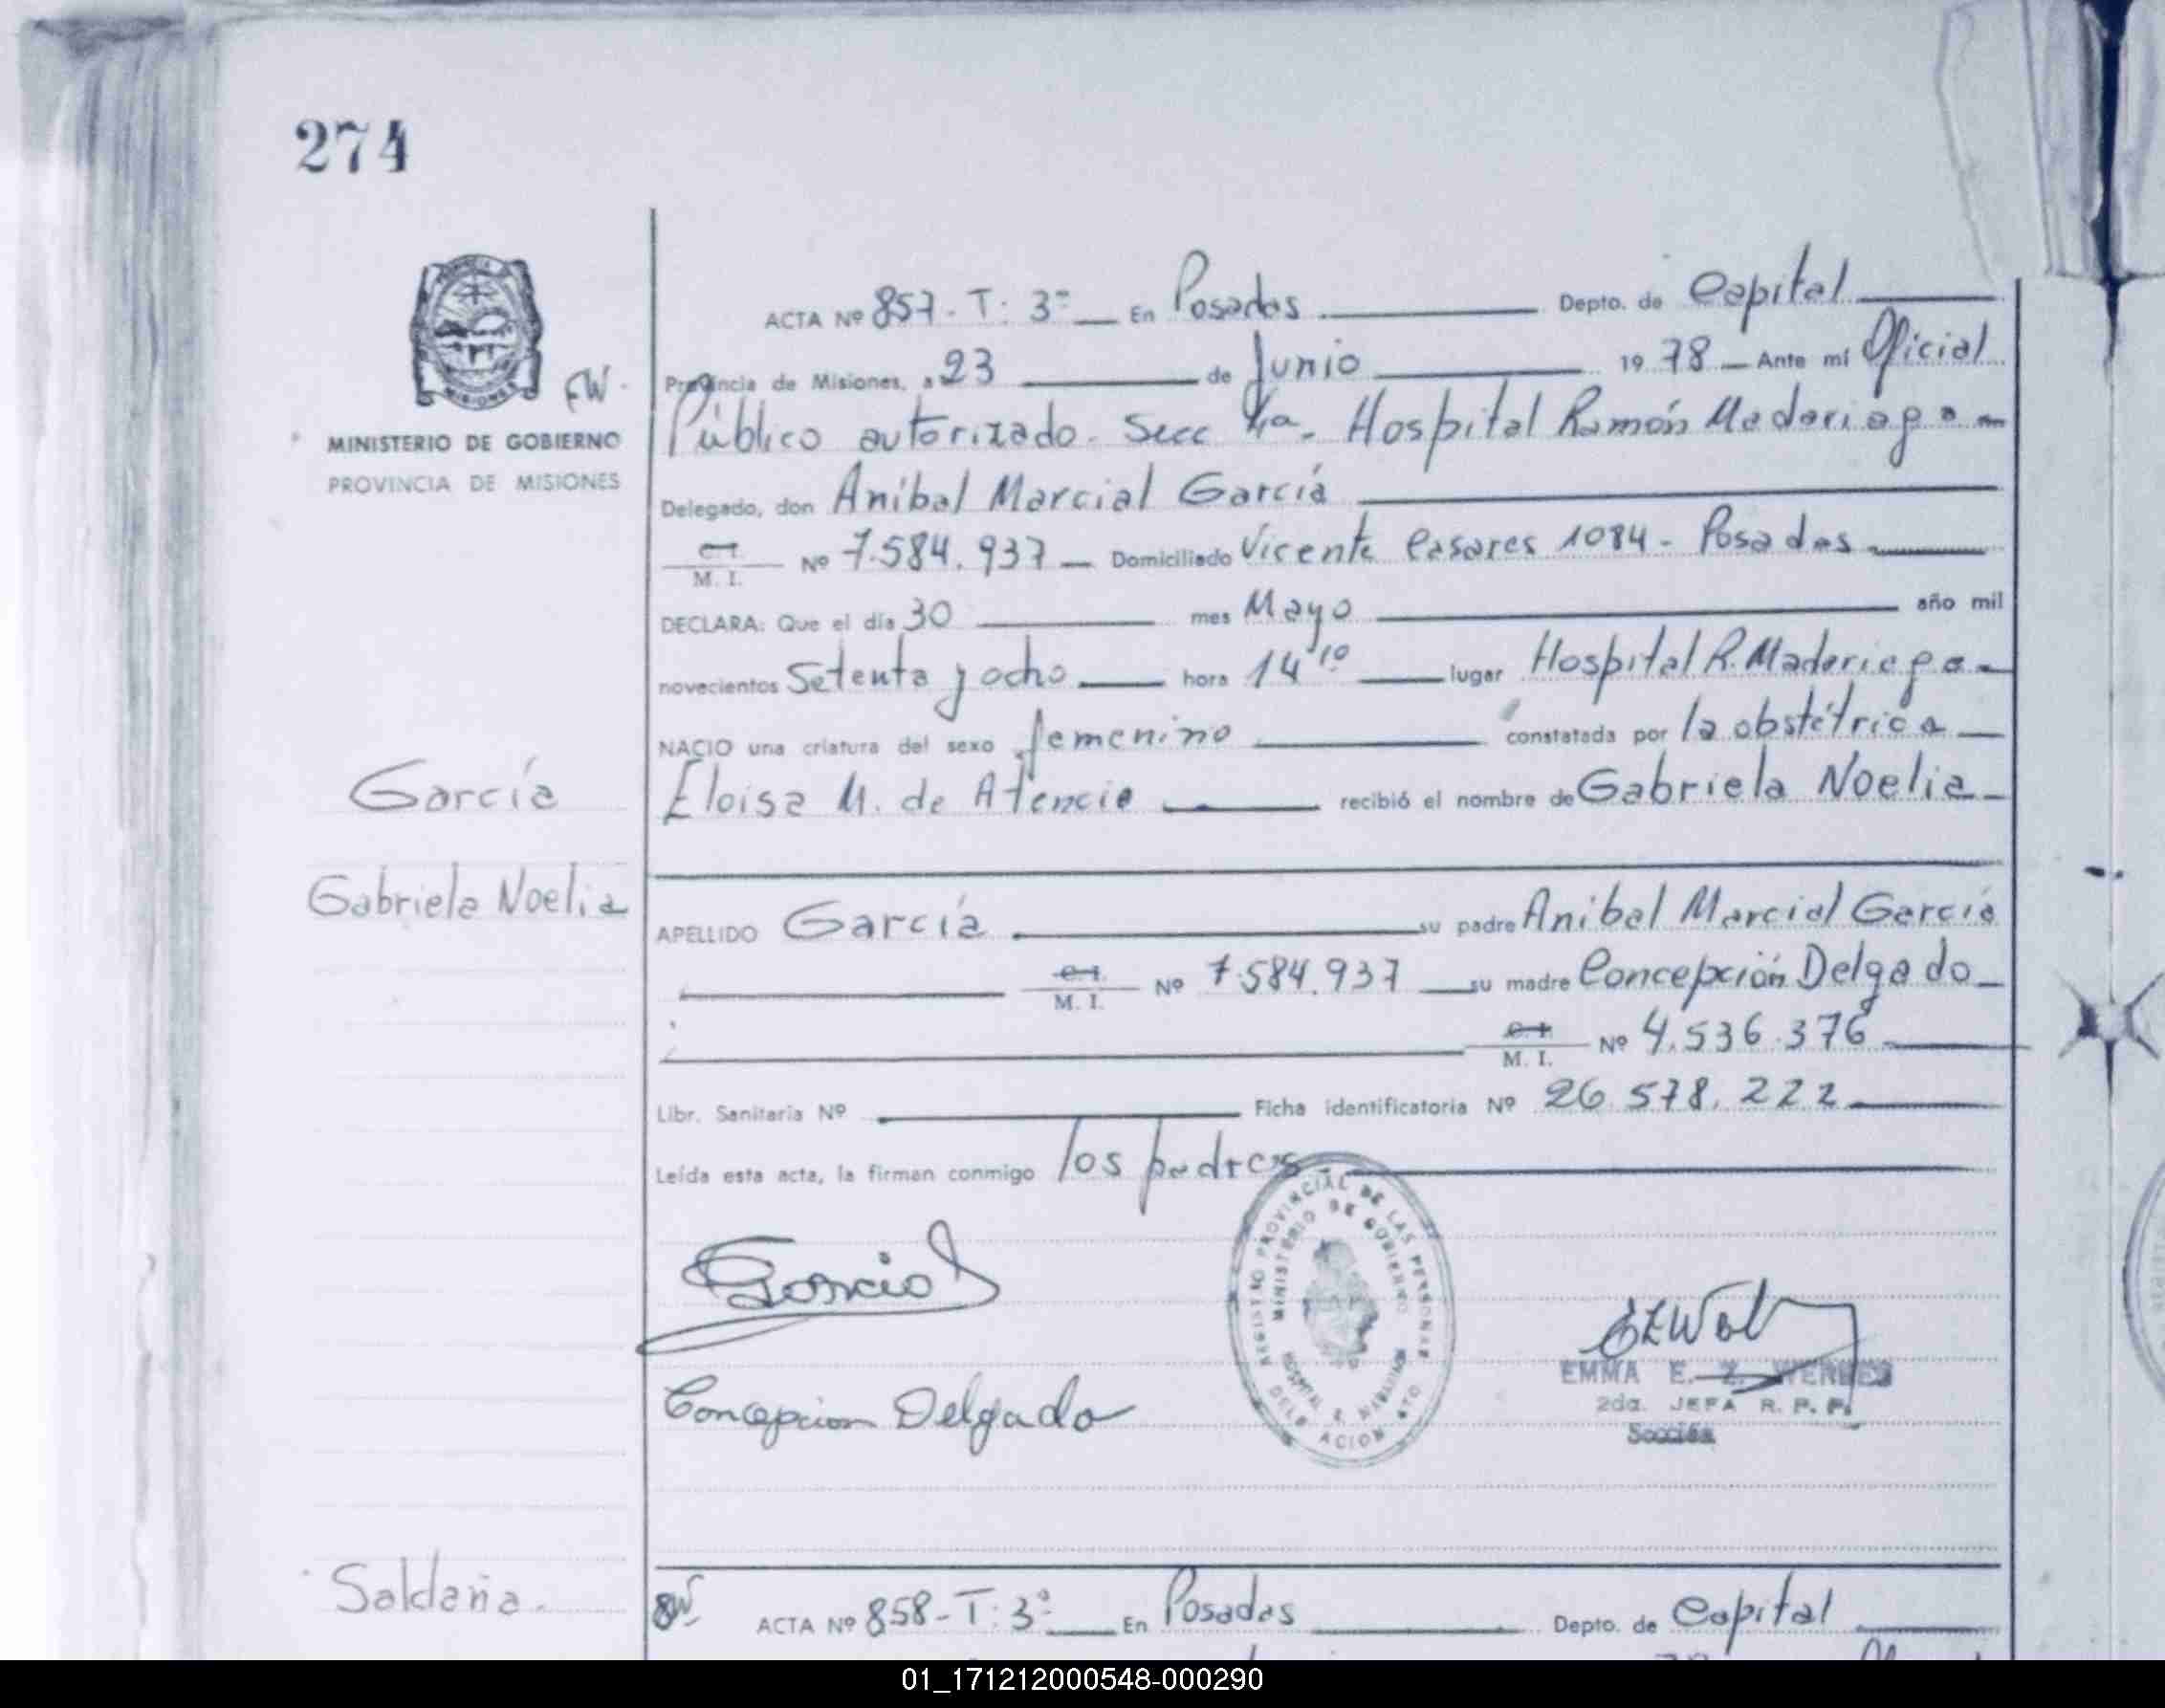 274
PROVINCIA DE
MISIONES
FW.
MINISTERIO DE GOBIERNO
PROVINCIA DE MISIONES
ACTA Nº 857-T: 3º En Posadas Depto. de Capital
Provincia de Misiones, a 23 de Junio 1978 Ante mí Oficial
Público autorizado. Secc 4a. Hospital Ramón Madariaga
Delegado, don Aníbal Marcial García
C.I. M. I. Nº 7.584.937 Domiciliado Vicente Casares 1084 - Posadas
DECLARA: Que el día 30 mes Mayo año mil
novecientos Setenta y ocho hora 14 10 lugar Hospital R. Madariaga
NACIO una criatura del sexo femenino constatada por la obstétrica
Eloisa M. de Atencio recibió el nombre de Gabriela Noelia
García
Gabriela Noelia
APELLIDO García su padre Aníbal Marcial García
C.I. M. I. Nº 7.584.937 su madre Concepción Delgado
C.I. M. I. Nº 4.536.376
Libr. Sanitaria Nº Ficha identificatoria Nº 26.578.222
Leída esta acta, la firman conmigo los padres
García
Concepcion Delgado
REGISTRO PROVINCIAL DE LAS PERSONAS
MINISTERIO DE GOBIERNO
HOSPITAL R. MADARIAGA
EMMA E. Z. WERNER
2da. JEFA R. P. P.
Sección
Saldaña.
ACTA Nº 858-T: 3º En Posadas Depto. de Capital
01_171212000548-000290